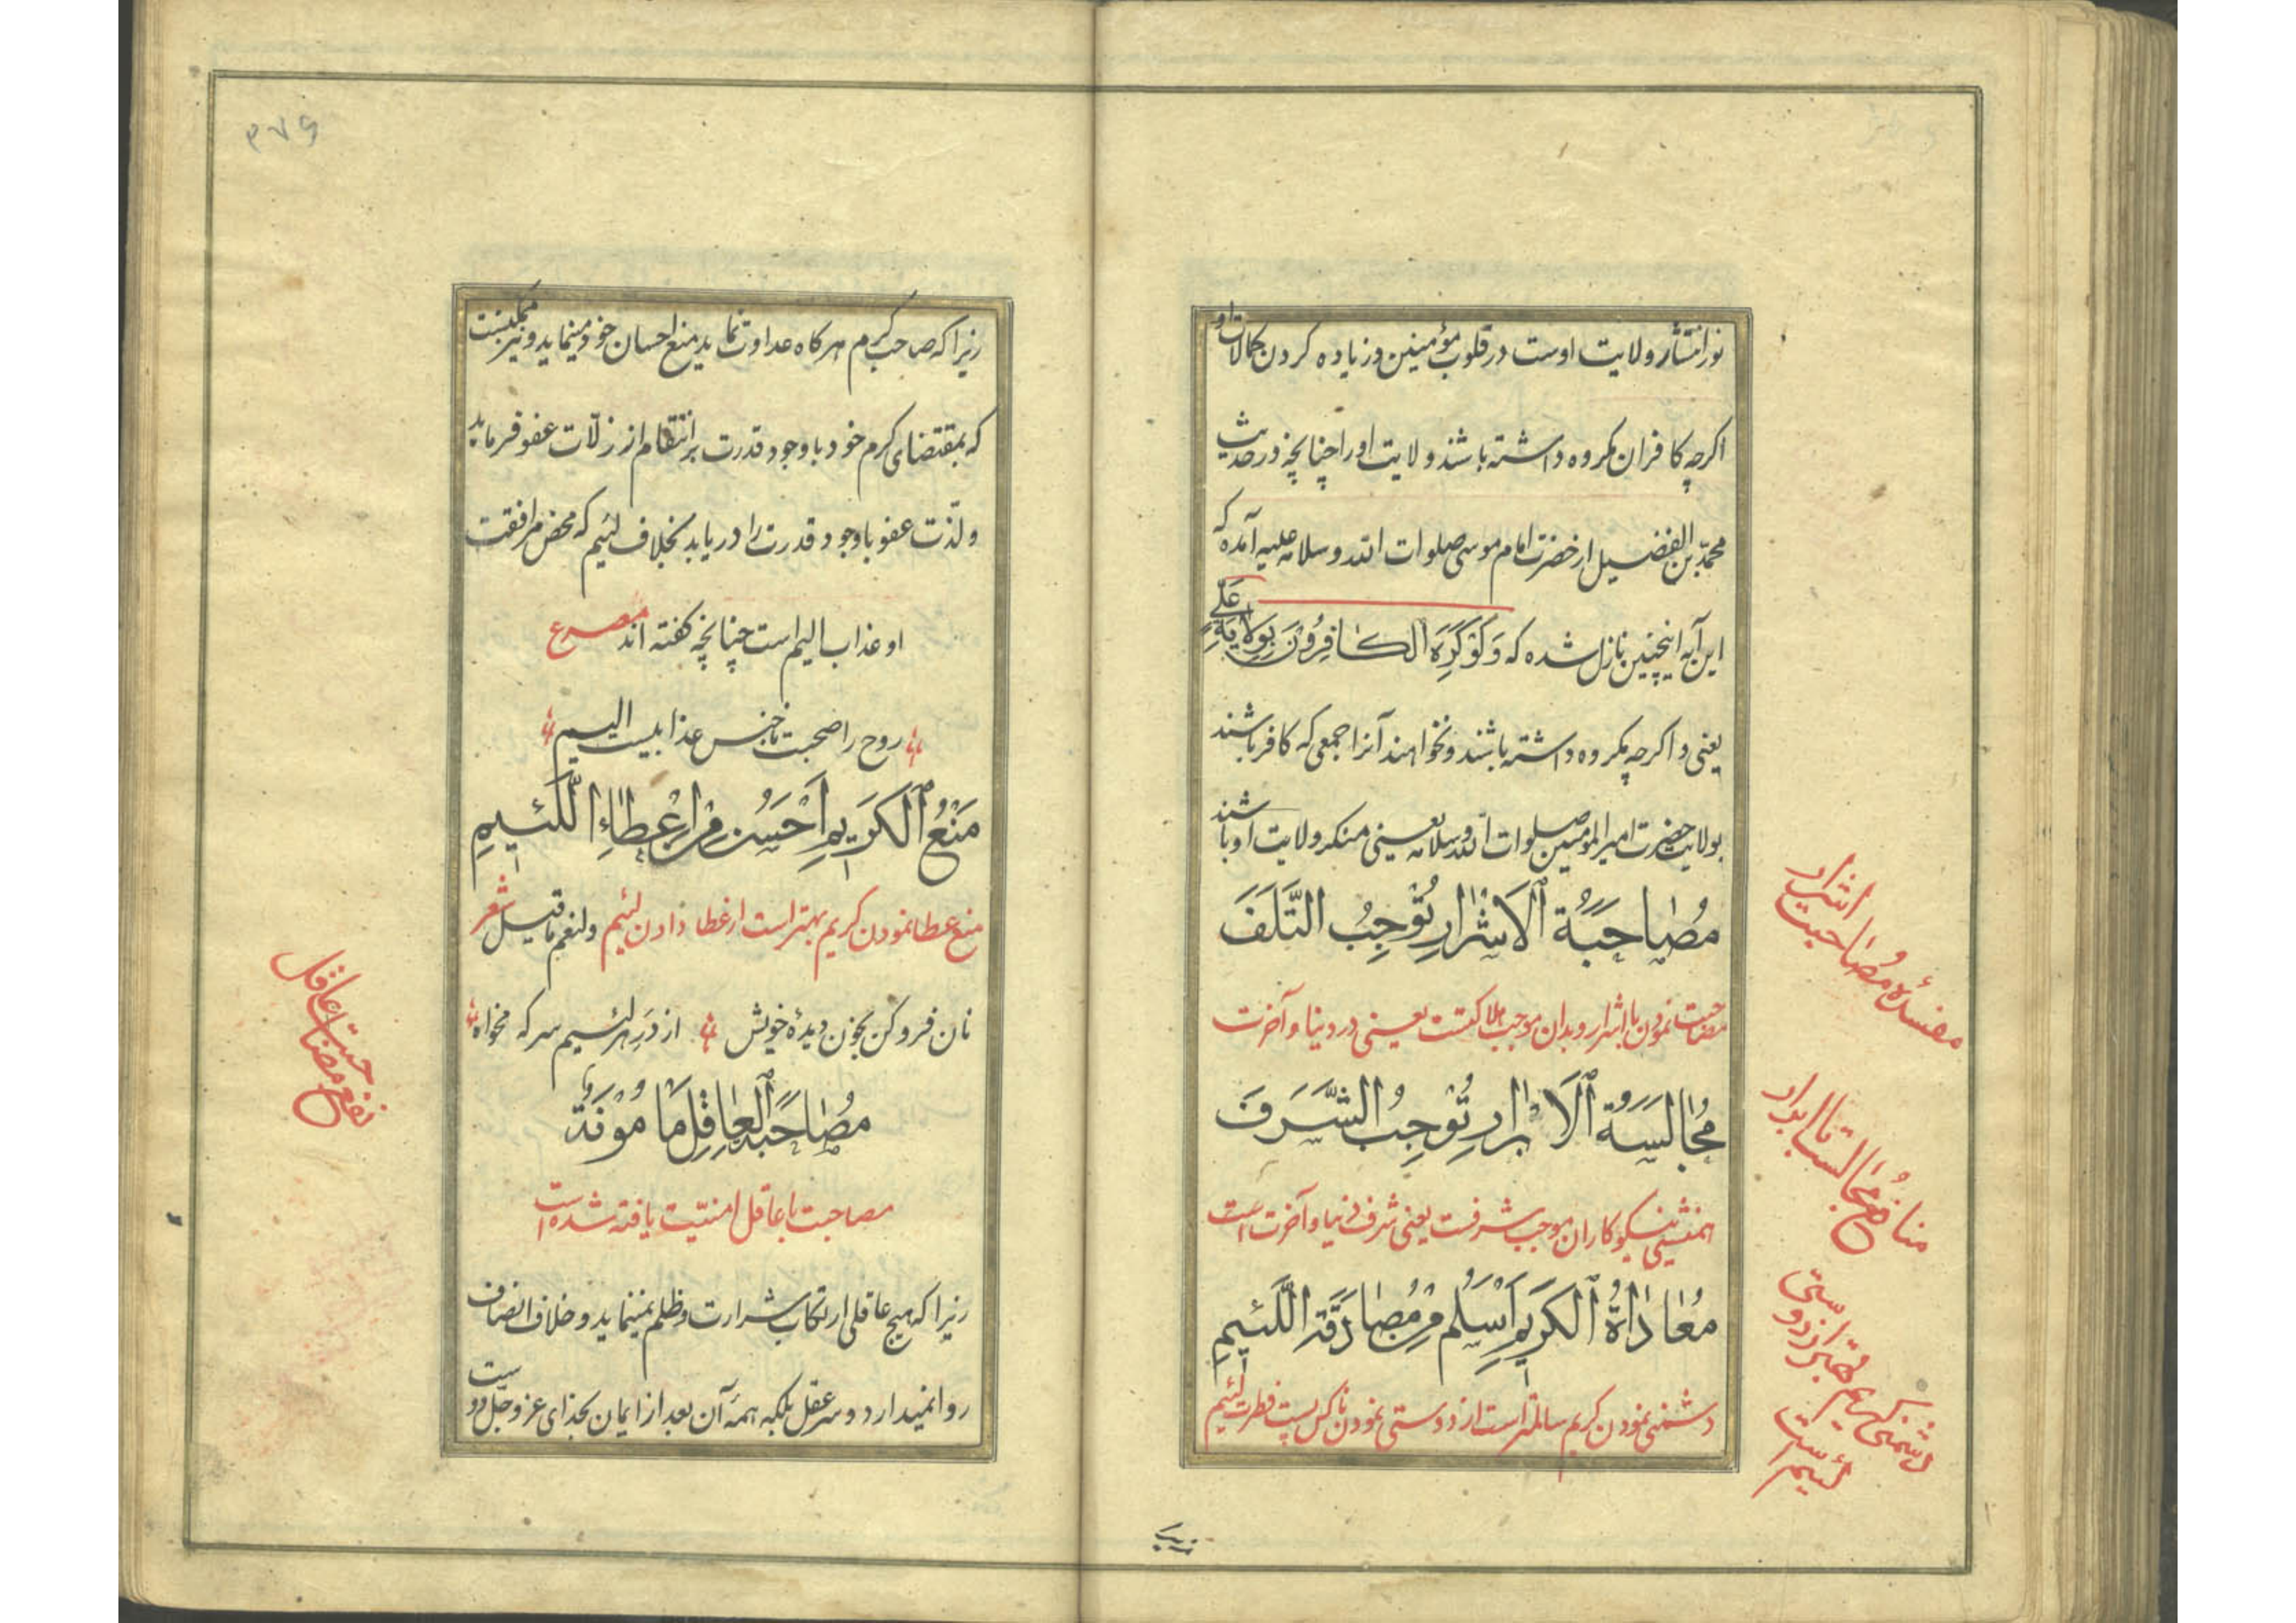 نور انتشار ولایت اوست در قلوب مؤمنین و زیاده کردن کمالات او
اکرچه کافران مکروه داشته باشند ولایت او را چنانچه در حدیث
محمّد بن الفضیل از حضرت امام موسی صلوات الله و سلامه علیه آمده که
این آیه اینچنین نازل شده که وَلَوْ كَرِهَ الْكَافِرُونَ بِوِلَايَةِ عَلِيٍّ
یعنی و اکرچه مکروه داشته باشند و نخواهند آنرا جمعی که کافر باشند
بولایت حضرت امیر المؤمنین صلوات الله و سلامه یعنی منکر ولایت او باشند
مُصَاحَبَةُ الْاَشْرَارِ تُوْجِبُ التَّلَفَ
مصاحبت نمودن با اشرار و بدان موجب هلاکتست یعنی در دنیا و آخرت
مُجَالَسَةُ الْاَبْرَارِ تُوْجِبُ الشَّرَفَ
همنشینی نیکوکاران موجب شرفست یعنی شرف دنیا و آخرت است
مُعَادَاةُ الْكَرِيمِ اَسْلَمُ مِنْ مُصَادَقَةِ اللَّئِيمِ
دشمنی نمودن کریم سالمتر است از دوستی نمودن ناکس پست فطرت لئیم
مفسدهٔ مصاحبت اشرار
منافع مجالست با ابرار
دشمنی کریم بهتر از دوستی
لئیم است
زیرا که صاحب کرم هرکاه عداوت نماید منع احسان خود مینماید و نیز ممکنست
که بمقتضای کرم خود با وجود قدرت بر انتقام از زلّات عفو فرماید
و لذّت عفو با وجود قدرت را دریابد بخلاف لئیم که محض مرافقت
او عذاب الیم است چنانچه کفته اند مصرع
روح را صحبت ناجنس عذابیست الیم
مَنْعُ الْكَرِيمِ اَحْسَنُ مِنْ اِعْطَاءِ اللَّئِيمِ
منع عطا نمودن کریم بهتر است از عطا دادن لئیم ولنعم ما قیل شعر
نان فرو کن بخون دیدهٔ خویش از در هر لئیم سرکه مخواه
مُصَاحَبَةُ الْعَاقِلِ مَأْمُونَةٌ
مصاحبت با عاقل امنیّت یافته شده است
زیرا که هیچ عاقلی ارتکاب شرارت و ظلم نمینماید و خلاف انصاف
روا نمیدارد و سر عقل بلکه همهٔ آن بعد از ایمان بخدای عزّ و جلّ دوستی
نفع مصاحبت عاقل
۳۷۶